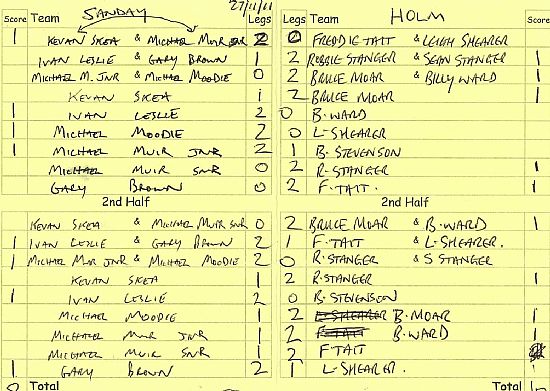 27/11/11
Score Team SANDAY Legs Legs HOLM Score
1 KEVAN SKEA & MICHAEL MUIR SNR 2 0 FREDDIE TAIT & LEIGH SHEARER
IVAN LESLIE & GARY BROWN 1 2 ROBBIE STANGER & SEAN STANGER 1
MICHAEL M. JNR & MICHAEL MOODIE 0 2 BRUCE MOAR & BILLY WARD 1
KEVAN SKEA 1 2 BRUCE MOAR 1
1 IVAN LESLIE 2 0 B. WARD
1 MICHAEL MOODIE 2 0 L. SHEARER
1 MICHAEL MUIR JNR 2 1 B. STEVENSON
MICHAEL MUIR SNR 0 2 R. STANGER 1
GARY BROWN 0 2 F. TAIT. 1
2nd Half 2nd Half
KEVAN SKEA & MICHAEL MUIR SNR 0 2 BRUCE MOAR & B. WARD 1
1 IVAN LESLIE & GARY BROWN 2 1 F. TAIT & L. SHEARER.
1 MICHAEL MUIR JNR & MICHAEL MOODIE 2 0 R. STANGER & S STANGER
KEVAN SKEA 1 2 R. STANGER 1
1 IVAN LESLIE 2 0 B. STEVENSON
MICHAEL MOODIE 1 2 L. SHEARER B. MOAR 1
MICHAEL MUIR JNR 1 2 F. TAIT B. WARD 1
MICHAEL MUIR SNR 1 2 F. TAIT
1 GARY BROWN 2 1 L. SHEARER.
Total Total